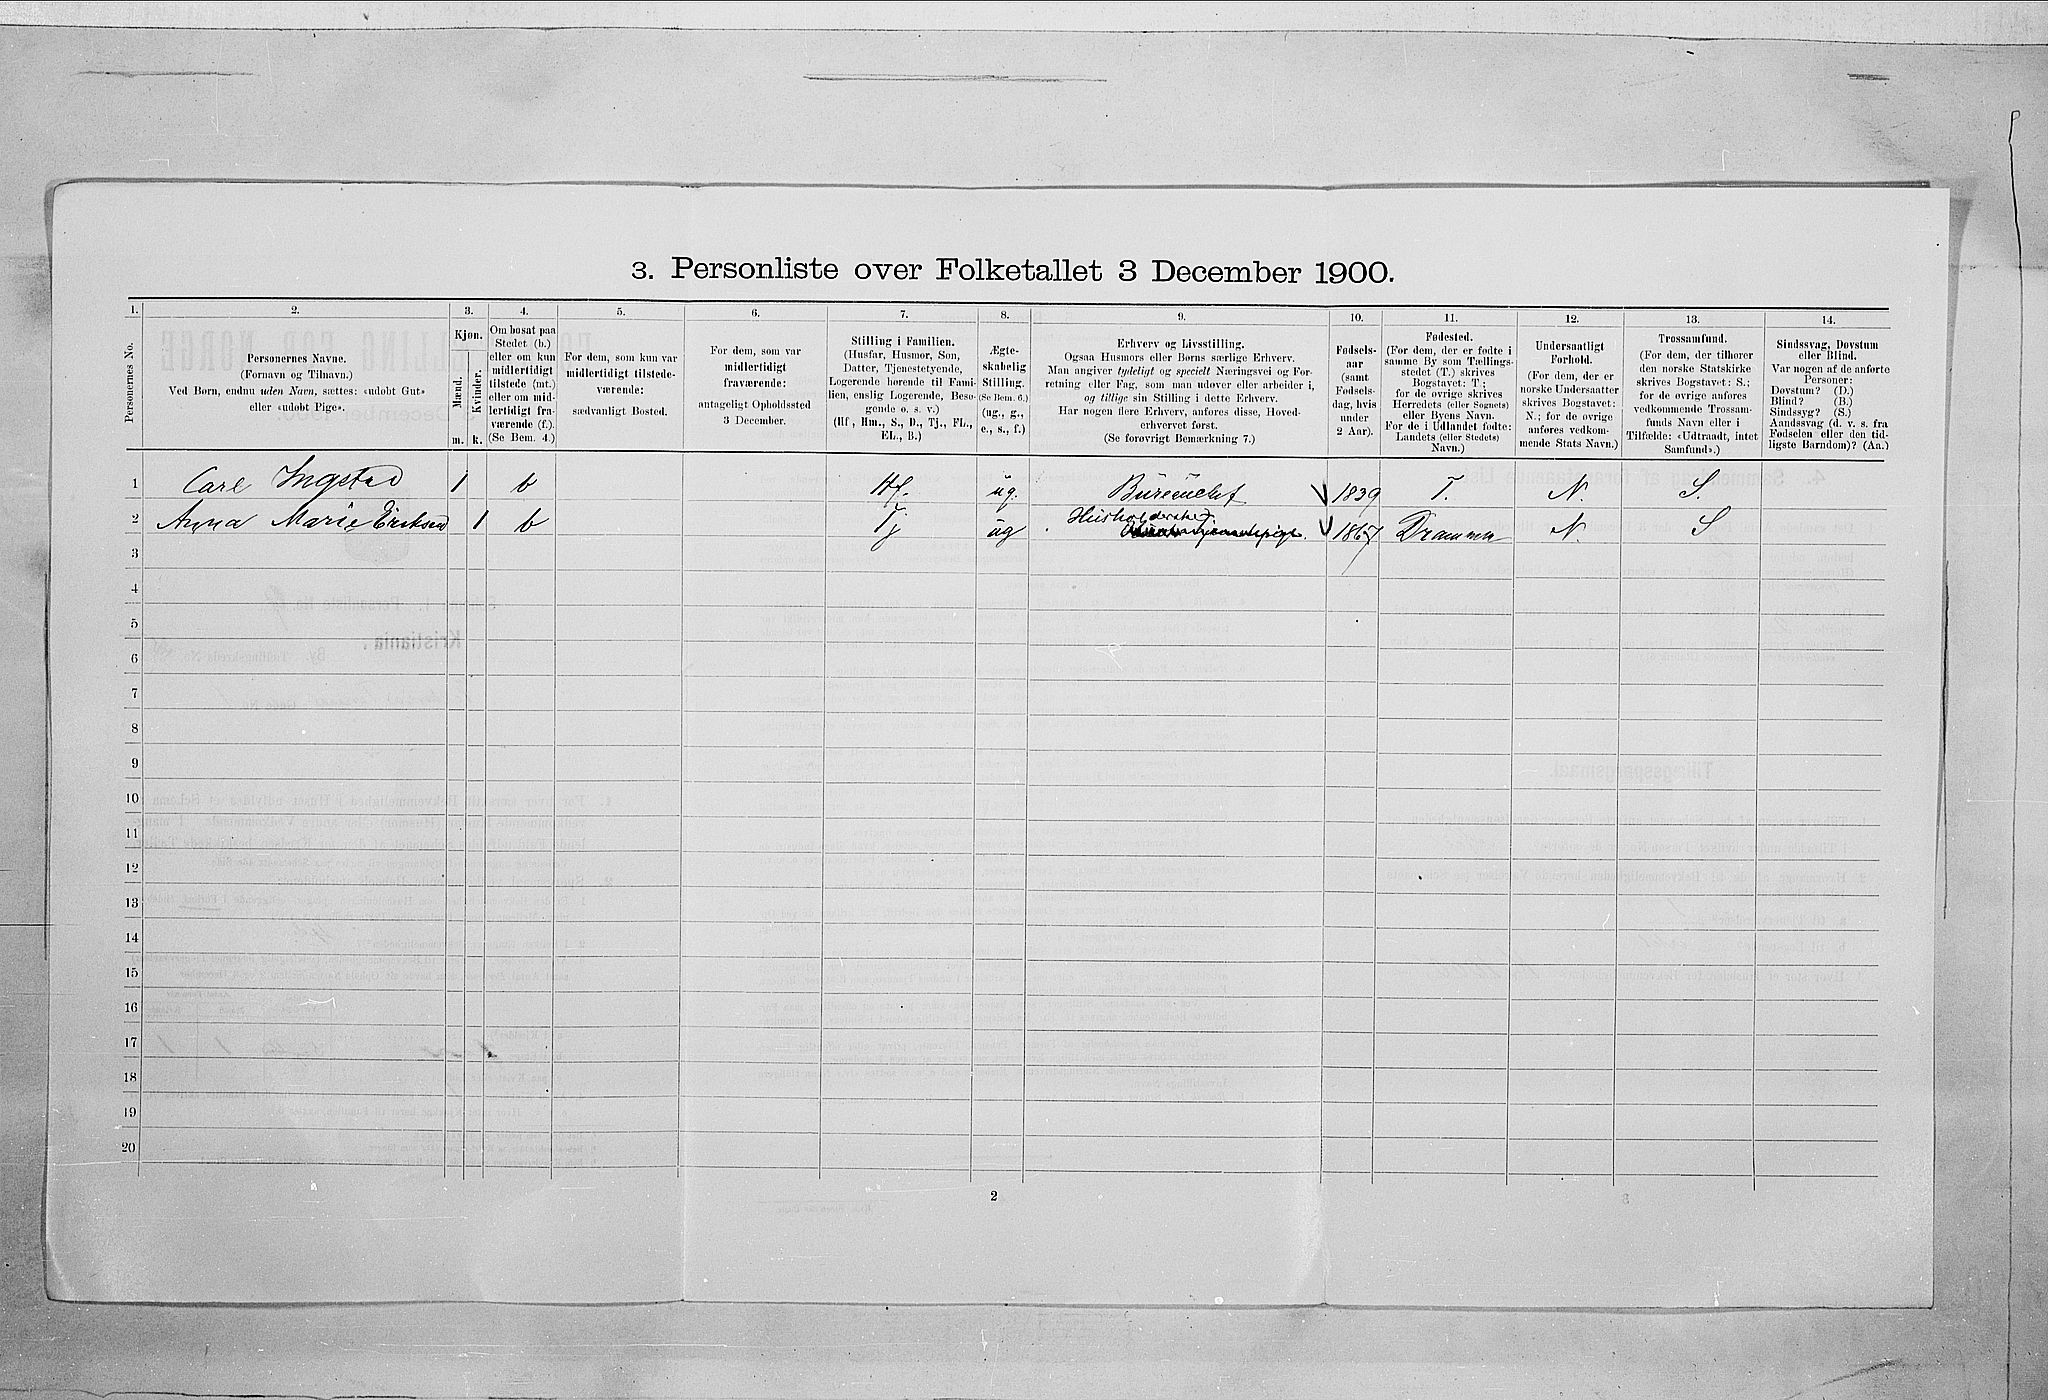 3. Personliste over Folketallet 3 December 1900.
1. 2. 3. 4. 5. 6. 7. 8. 9. 10. 11. 12. 13. 14.
Personernes No.
Personernes Navne.
(Fornavn og Tilnavn.)
Ved Børn, endnu uden Navn, sættes: «udøbt Gut»
eller «udøbt Pige».
Kjøn.
Mænd.
Kvinder.
m. k.
Om bosat paa
Stedet (b.)
eller om kun
midlertidigt
tilstede (mt.)
eller om mid-
lertidigt fra-
værende (f.).
(Se Bem. 4.)
For dem, som kun var
midlertidigt tilstede-
værende:
sædvanligt Bosted.
For dem, som var
midlertidigt
fraværende:
antageligt Opholdssted
3 December.
Stilling i Familien.
(Husfar, Husmor, Søn,
Datter, Tjenestetyende,
Logerende hørende til Fami-
lien, enslig Logerende, Besø-
gende o. s. v.)
(Hf, Hm., S., D., Tj., FL.,
EL., B.)
Ægte-
skabelig
Stilling.
(Se Bem. 6.)
(ug., g.,
e., s., f.)
Erhverv og Livsstilling.
Ogsaa Husmors eller Børns særlige Erhverv.
Man angiver tydeligt og specielt Næringsvei og For-
retning eller Fag, som man udøver eller arbeider i,
og tillige sin Stilling i dette Erhverv.
Har nogen flere Erhverv, anføres disse, Hoved-
erhvervet først.
(Se forøvrigt Bemærkning 7.)
Fødsels-
aar
(samt
Fødsels-
dag, hvis
under
2 Aar).
Fødested.
(For dem, der er fødte i
samme By som Tællings-
stedet (T.) skrives
Bogstavet: T.;
for de øvrige skrives
Herredets (eller Sognets)
eller Byens Navn.
For de i Udlandet fødte:
Landets (eller Stedets)
Navn.)
Undersaatligt
Forhold.
(For dem, der er
norske Undersaatter
skrives Bogstavet:
N.; for de øvrige
anføres vedkom-
mende Stats Navn.)
Trossamfund.
(For dem, der tilhører
den norske Statskirke
skrives Bogstavet: S.;
for de øvrige anføres
vedkommende Trossam-
funds Navn eller i
Tilfælde: «Udtraadt, intet
Samfund».)
Sindssvag, Døvstum
eller Blind.
Var nogen af de anførte
Personer:
Døvstum? (D.)
Blind? (B.)
Sindssyg? (S.)
Aandssvag (d. v. s. fra
Fødselen eller den tid-
ligste Barndom)? (Aa.)
1 Carl Ingstad 1 b Hf. ug. Bureauchef 1839 T. N. S.
2 Anna Marie Eriksen 1 b Tj ug Husholderske 1867 Drammen N. S
3
4
5
6
7
8
9
10
11
12
13
14
15
16
17
18
19
20
2